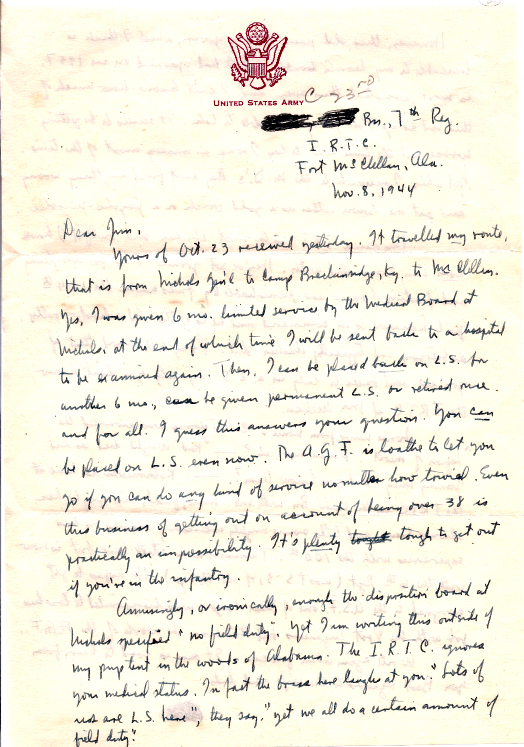 UNITED STATES ARMY
C-23RD
Bn., 7th Reg.
I.R.T.C.
Fort McClellan, Ala.
Nov. 8, 1944
Dear Jim,
Yours of Oct. 23 received yesterday. It travelled my route,
that is from Nichols Gen'l to Camp Breckinridge, Ky. to McClellan.
Yes, I was given 6 mo. limited service by the Medical Board at
Nichols, at the end of which time I will be sent back to a hospital
to be examined again. Then, I can be placed back on L.S. for
another 6 mo., can be given permanent L.S. or retired once
and for all. I guess this answers your question. You can
be placed on L.S. even now. The A.G.F. is loathe to let you
go if you can do any kind of service no matter how trivial. Even
this business of getting out on account of being over 38 is
practically an impossibility. It's plenty tough to get out
if you're in the infantry.
Amusingly, or ironically, enough the disposition board at
Nichols specified "no field duty". Yet I'm writing this outside of
my pup tent in the woods of Alabama. The I.R.T.C. ignores
your medical status. In fact the brass here laughs at you. "Lots of
us are L.S. here", they say, "yet we all do a certain amount of
field duty".